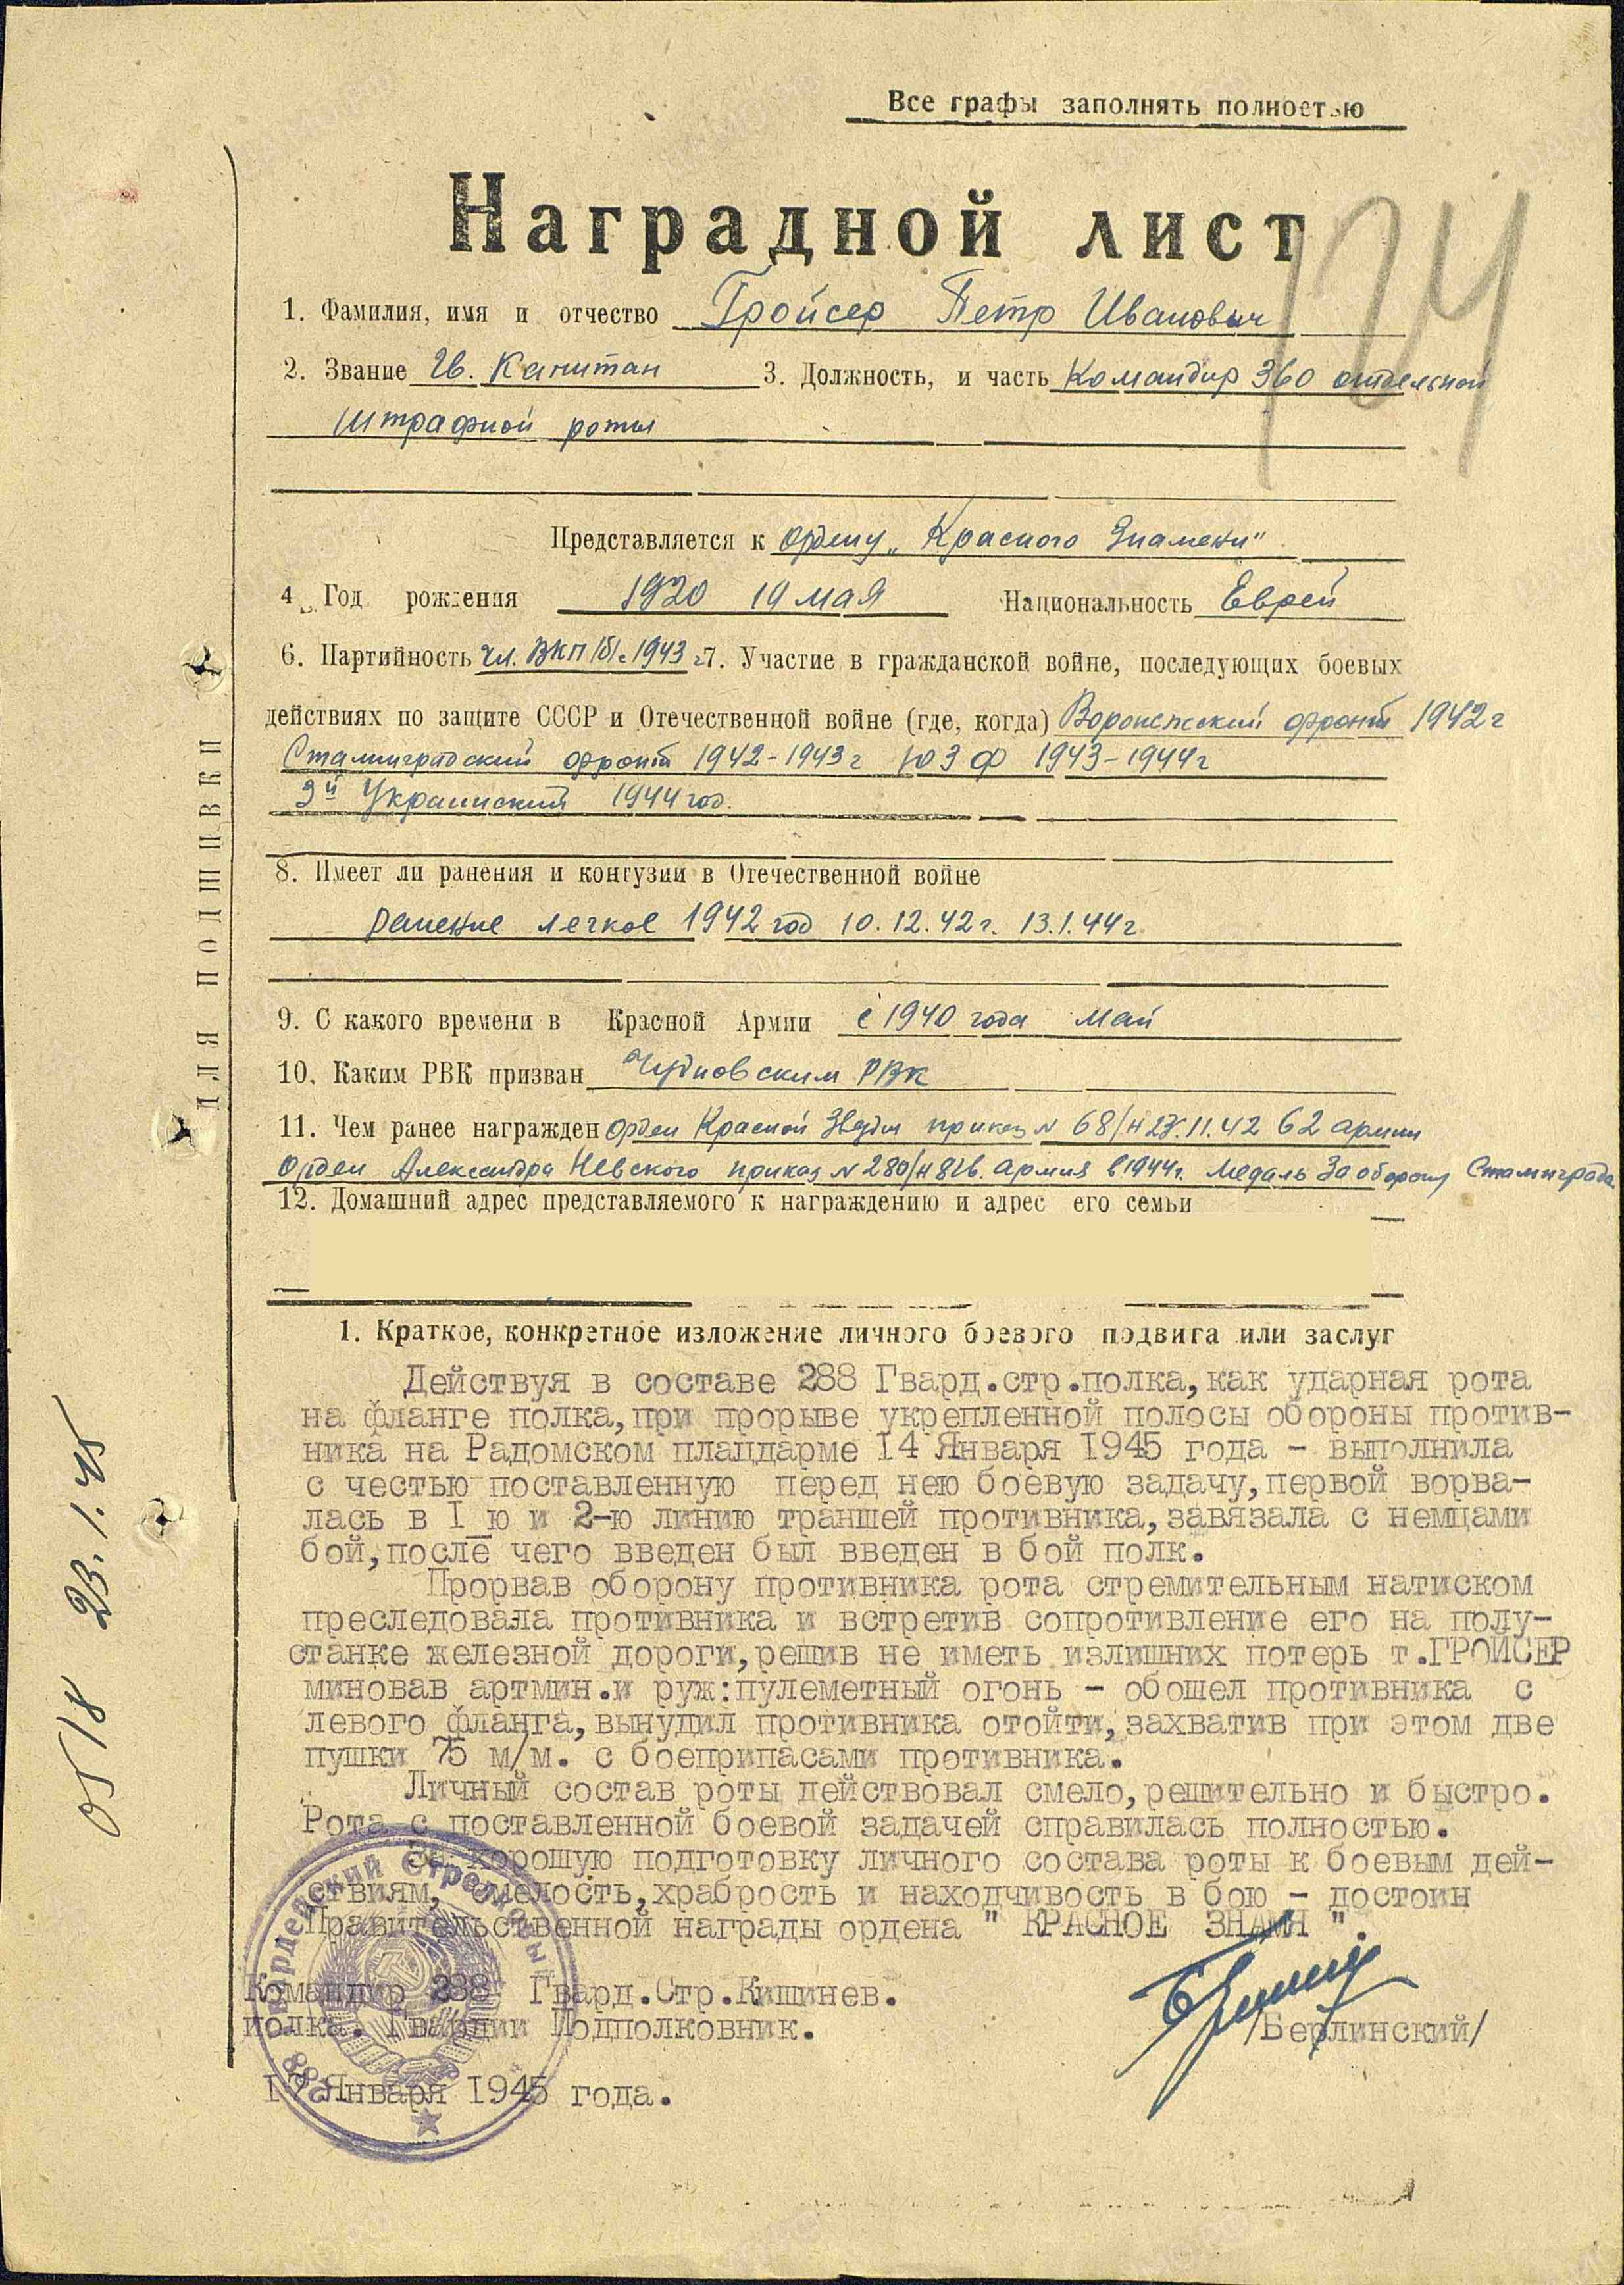 Все графы заполнять полностью
Наградной лист
124
1. Фамилия, имя и отчество Гройсер Петр Иванович
2. Звание Гв. Капитан 3. Должность, и часть Командир 360 отдельной
штрафной роты
Представляется к ордену „Красного Знамени"
4 Год рождения 1920 19 мая Национальность Еврей
6. Партийность чл. ВКП/б/ с 1943 г 7. Участие в гражданской войне, последующих боевых
действиях по защите СССР и Отечественной войне (где, когда) Воронежский фронт 1942 г
Сталинградский фронт 1942-1943 г ЮЗФ 1943-1944 г
3й Украинский 1944 год.
8. Имеет ли ранения и контузии в Отечественной войне
ранение легкое 1942 год 10.12.42 г. 13.1.44 г
9. С какого времени в Красной Армии с 1940 года май
10. Каким РВК призван Чудновским РВК
11. Чем ранее награжден Орден Красной Звезды приказ N 68/н 62 армии
Орден Александра Невского приказ N 280/н 8 гв. армия в 1944 г. Медаль За оборону Сталинграда
12. Домашний адрес представляемого к награждению и адрес его семьи
1. Краткое, конкретное изложение личного боевого подвига или заслуг
Действуя в составе 288 Гвард.стр.полка, как ударная рота
на фланге полка, при прорыве укрепленной полосы обороны против-
ника на Радомском плацдарме 14 Января 1945 года - выполнила
с честью поставленную перед нею боевую задачу, первой ворва-
лась в I_ю и 2-ю линию траншей противника, завязала с немцами
бой, после чего введен был введен в бой полк.
Прорвав оборону противника рота стремительным натиском
преследовала противника и встретив сопротивление его на полу-
станке железной дороги, решив не иметь излишних потерь т.ГРОЙСЕР
миновав артмин.и руж:пулеметный огонь - обошел противника с
левого фланга, вынудил противника отойти, захватив при этом две
пушки 75 м/м. с боеприпасами противника.
Личный состав роты действовал смело, решительно и быстро.
Рота с поставленной боевой задачей справилась полностью.
За хорошую подготовку личного состава роты к боевым дей-
ствиям, смелость, храбрость и находчивость в бою - достоин
Правительственной награды ордена " КРАСНОЕ ЗНАМЯ ".
Командир 288 Гвард.Стр.Кишинев.
полка. Гвардии Подполковник. /Берлинский/
17 Января 1945 года.
ДЛЯ ПОДШИВКИ
0518 23.1.45
Гвардейский Стрелковый
288